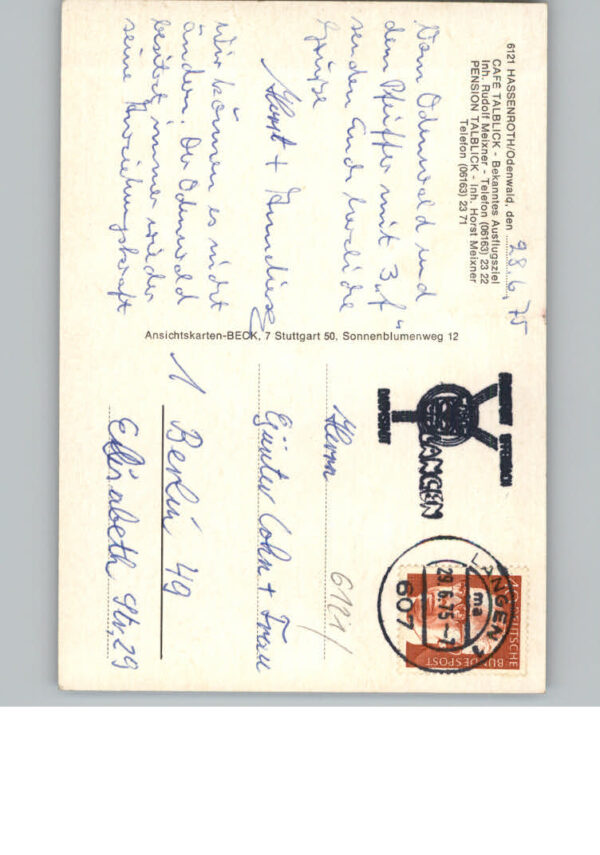 6121 HASSENROTH/Odenwald, den 28.6.75
CAFE TALBLICK - Bekanntes Ausflugsziel
Inh. Rudolf Meixner - Telefon (06163) 23 22
PENSION TALBLICK - Inh. Horst Meixner
Telefon (06163) 23 71
Vom Odenwald und
dem Pfeiffer mit 3 "f"
senden Euch herzliche
Grüße
Horst + Anneliese
Wir können es nicht
ändern! Der Odenwald
besitzt immer wieder
seine Anziehungskraft
Ansichtskarten-BECK, 7 Stuttgart 50, Sonnenblumenweg 12
FRANKFURT OFFENBACH
LANGEN
DARMSTADT
LANGEN 1
ma
29.6.75
607
DEUTSCHE
BUNDESPOST
6121/
Herrn
Günter Cohn + Frau
1 Berlin 49
Elisabeth Str, 29